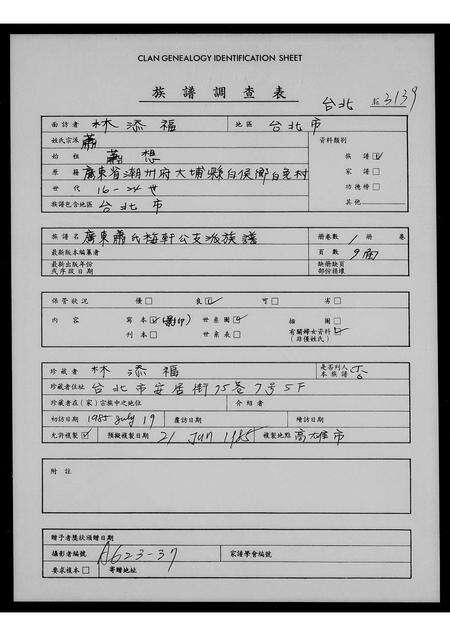 CLAN GENEALOGY IDENTIFICATION SHEET
族譜調查表
台北 № 3139
面訪者 林添福 地區 台北市
姓氏宗派 蕭 資料類別
始祖 蕭想 族譜☑
原籍 廣東省潮州府大埔縣白侯鄉白堯村 家譜□
世代 16-24世 功德榜□
族譜包含地區 台北市 其他
族譜名 廣東蕭氏梅軒公支派族譜 冊卷數 1 冊 卷
最新版本編纂者 頁數 9面
最新出版年份或序跋日期 缺冊缺頁部份損壞
保管狀況 優□ 良☑ 可□ 劣□
內容 寫本☑(影印) 世系圖☑ 插圖□
刊本□ 世系表□ 有關婦女資料☑(非僅姓氏)
珍藏者 林添福 是否列入本族譜 否
珍藏者住址 台北市安居街75巷7号5F
珍藏者在(家)宗族中之地位 介紹者
初訪日期 1985 July 19 覆訪日期 續訪日期
允許複製☑ 預擬複製日期 21 Jun 1985 複製地點 高雄市
附註
贈予者獎狀頒贈日期
攝影者編號 A623-37 家譜學會編號
要求複本□ 寄贈地址